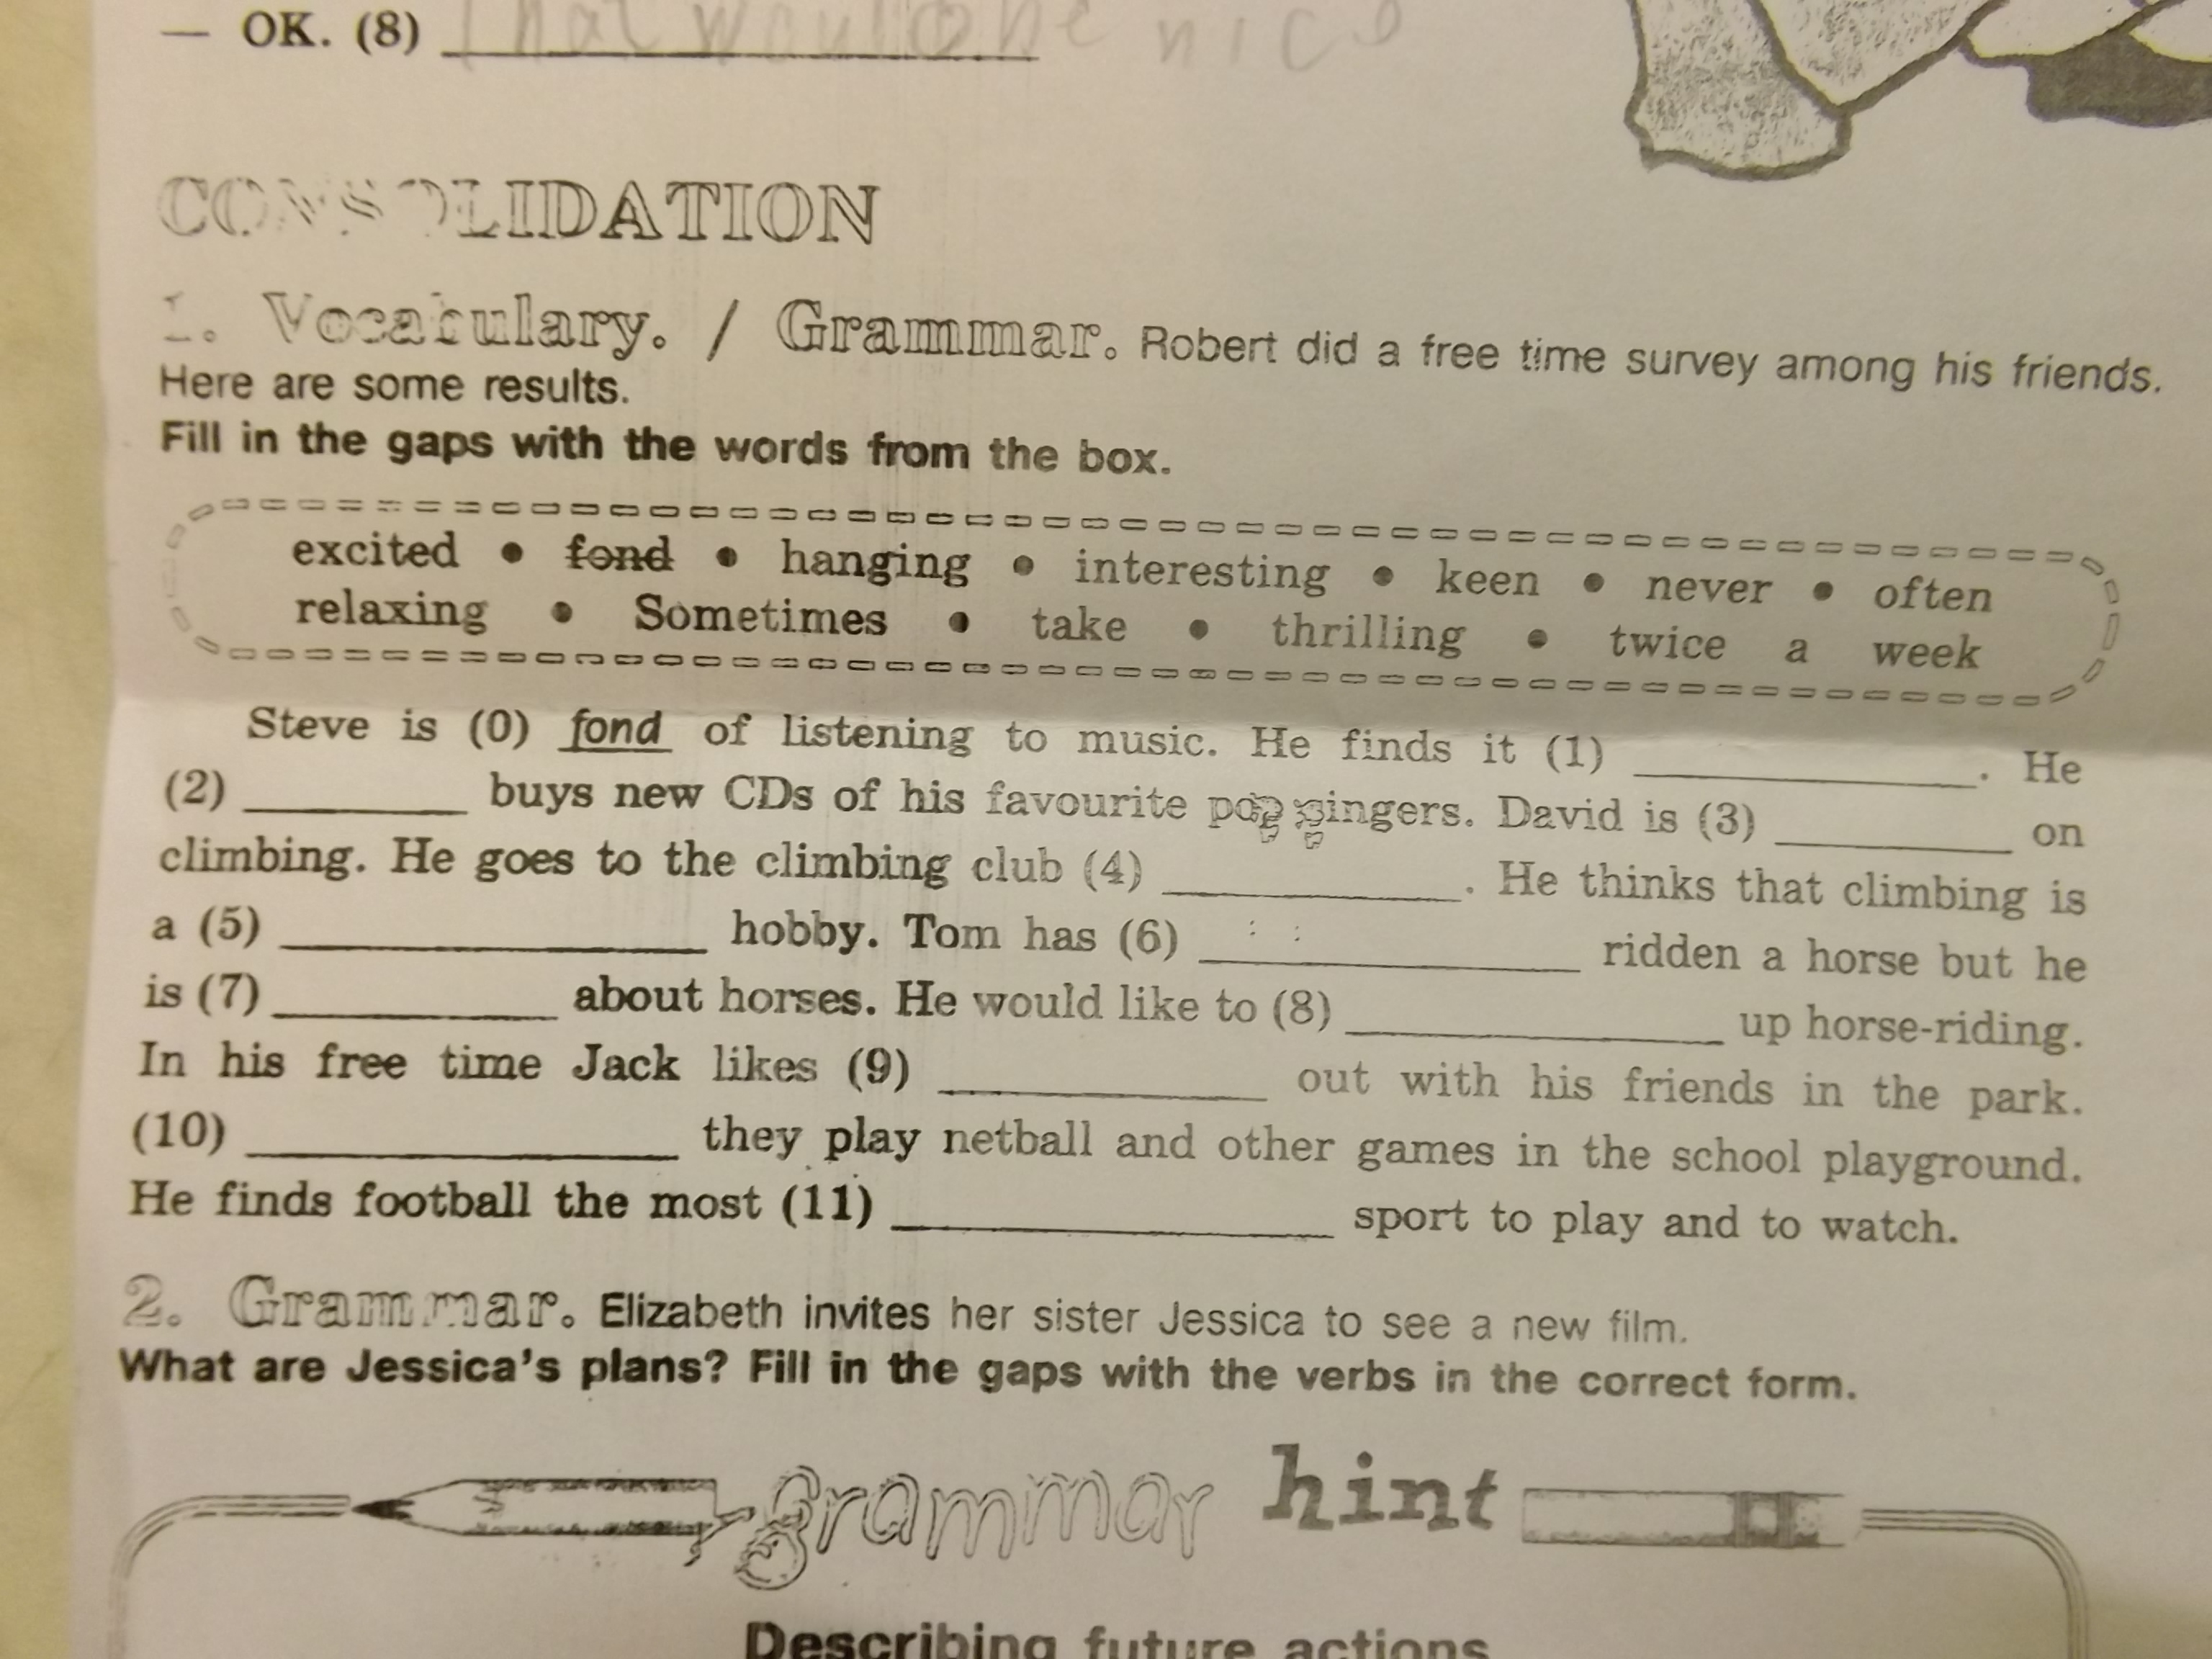 — OK. (8) That would be nice
CONSOLIDATION
1. Vocabulary. / Grammar. Robert did a free time survey among his friends.
Here are some results.
Fill in the gaps with the words from the box.
excited • fond • hanging • interesting • keen • never • often
relaxing • Sometimes • take • thrilling • twice a week
Steve is (0) fond of listening to music. He finds it (1) ____________. He
(2) ________ buys new CDs of his favourite pop singers. David is (3) ________ on
climbing. He goes to the climbing club (4) __________. He thinks that climbing is
a (5) ______________ hobby. Tom has (6) ____________ ridden a horse but he
is (7) __________ about horses. He would like to (8) ____________ up horse-riding.
In his free time Jack likes (9) ___________ out with his friends in the park.
(10) ______________ they play netball and other games in the school playground.
He finds football the most (11) ______________ sport to play and to watch.
2. Grammar. Elizabeth invites her sister Jessica to see a new film.
What are Jessica's plans? Fill in the gaps with the verbs in the correct form.
grammar hint
Describing future actions